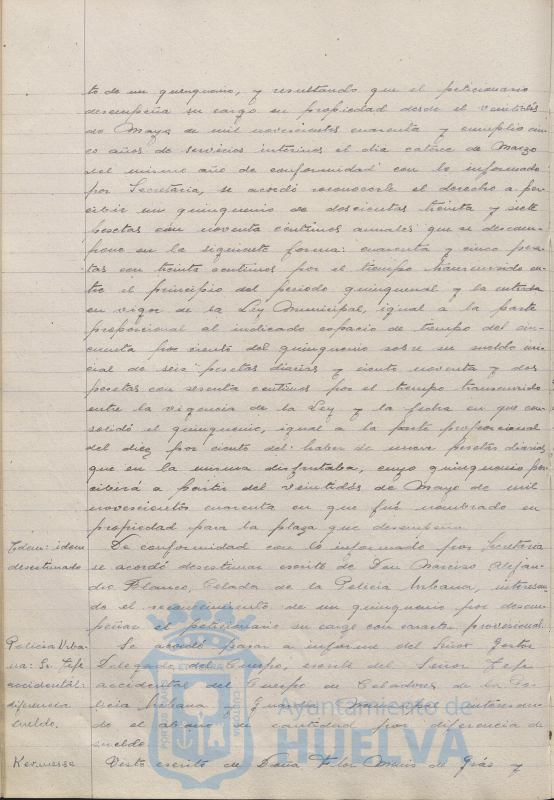 to de un quinquenio, y resultando que el peticionario
desempeña su cargo en propiedad desde el veintidós
de Mayo de mil novecientos cuarenta y cumplió cin-
co años de servicios interinos el día catorce de Marzo
del mismo año de conformidad con lo informado
por Secretaría, se acordó reconocerle el derecho a per-
cibir un quinquenio de doscientas treinta y siete
pesetas con noventa centimos anuales que se descom-
pone en la siguiente forma: cuarenta y cinco pese-
tas con treinta centimos por el tiempo transcurrido en-
tre el principio del periodo quinquenal y la entrada
en vigor de la Ley Municipal, igual a la parte
proporcional al indicado espacio de tiempo del cin-
cuenta por ciento del quinquenio sobre su sueldo ini-
cial de seis pesetas diarias y ciento noventa y dos
pesetas con sesenta centimos por el tiempo transcurrido
entre la vigencia de la Ley y la fecha en que con-
solidó el quinquenio, igual a la parte proporcional
del diez por ciento del haber de nueve pesetas diarias
que en la misma disfrutaba, cuyo quinquenio per-
cibirá a partir del veintidós de Mayo de mil
novecientos cuarenta en que fué nombrado en
propiedad para la plaza que desempeña
Idem: idem
desestimado
De conformidad con lo informado por Secretaría
se acordó desestimar escrito de Don Narciso Alejan-
dro Blanco, Celador de la Policía Urbana, interesan-
do el reconocimiento de un quinquenio por desem-
peñar el peticionario su cargo con caracter provisional.
Policía Urba-
na: Sr. Jefe
accidental:
diferencia
sueldo.
Se acordó pasar a informe del Señor Gestor
Delegado del Cuerpo, escrito del Señor Jefe
accidental del Cuerpo de Celadores de la Po-
licía Urbana y Guardia Municipal interesan-
do el abono de cantidad por diferencia de
sueldo.
Kermesse
Visto escrito de Doña Flor María de Grás y
Ayuntamiento de
HUELVA